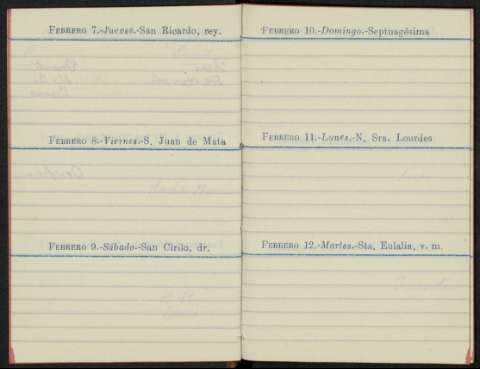 FEBRERO 7.-Jueves.-San Ricardo, rey.
FEBRERO 8.-Viernes.-S. Juan de Mata
FEBRERO 9.-Sábado.-San Cirilo, dr.
FEBRERO 10.-Domingo.-Septuagésima
FEBRERO 11.-Lunes.-N. Sra. Lourdes
FEBRERO 12.-Martes.-Sta. Eulalia, v. m.